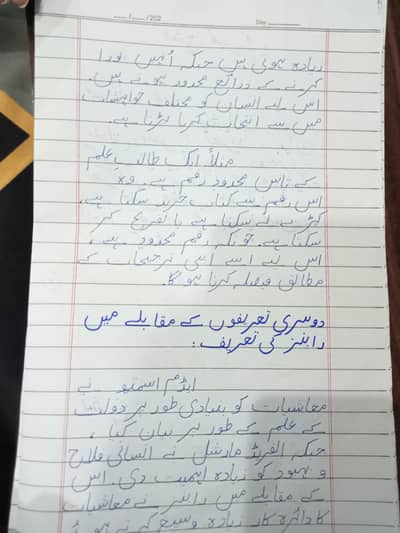 ___/___/202_ Day: ________
زیادہ ہوتی ہیں جبکہ اُنہیں پورا
کرنے کے ذرائع محدود ہوتے ہیں۔
اس لیے انسان کو مختلف خواہشات
میں سے انتخاب کرنا پڑتا ہے۔
مثلاً ایک طالب علم
کے پاس محدود رقم ہے۔ وہ
اس رقم سے کتاب خرید سکتا ہے،
کپڑے لے سکتا ہے یا تفریح کر
سکتا ہے۔ چونکہ رقم محدود ہے،
اس لیے اسے اپنی ترجیحات کے
مطابق فیصلہ کرنا ہو گا۔
دوسری تعریفوں کے مقابلے میں
رابنز کی تعریف:
ایڈم اسمتھ نے
معاشیات کو بنیادی طور پر دولت
کے علم کے طور پر بیان کیا،
جبکہ الفریڈ مارشل نے انسانی فلاح
و بہبود کو زیادہ اہمیت دی۔ اس
کے مقابلے میں رابنز نے معاشیات
کا دائرہ کار زیادہ وسیع کرتے ہوئے